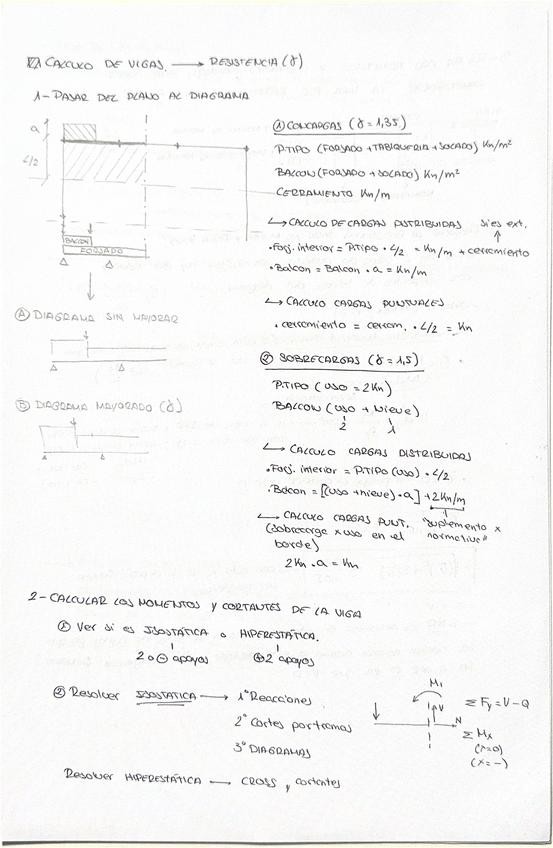 CALCULO DE VIGAS → RESISTENCIA (γ)
1- PASAR DEL PLANO AL DIAGRAMA
a
L/2
BALCON
FORJADO
Ⓐ DIAGRAMA SIN MAYORAR
Ⓑ DIAGRAMA MAYORADO (γ)
① CONCARGAS (γ = 1,35)
P.TIPO (FORJADO + TABIQUERIA + SOLADO) Kn/m²
BALCON (FORJADO + SOLADO) Kn/m²
CERRAMIENTO Kn/m
↳ CALCULO DE CARGAS DISTRIBUIDAS si es ext.
• Forj. interior = P.TIPO • L/2 = Kn/m + cerramiento
• Balcon = Balcon • a = Kn/m
↳ CALCULO CARGAS PUNTUALES
• cerramiento = cerram. • L/2 = Kn
② SOBRECARGAS (γ = 1,5)
P.TIPO (USO = 2Kn)
BALCON (USO + Nieve)
2 1
↳ CALCULO CARGAS DISTRIBUIDAS
• Forj. interior = P.TIPO (USO) • L/2
• Balcon = [(uso + nieve) • a] + 2Kn/m
↳ CALCULO CARGAS PUNT. "suplemento x normativa"
(Sobrecarga x uso en el borde)
2Kn • a = Kn
2- CALCULAR LOS MOMENTOS Y CORTANTES DE LA VIGA
① Ver si es ISOSTÁTICA o HIPERESTÁTICA.
2 o ⊖ apoyos ⊕ 2 apoyos
② Resolver ISOSTATICA → 1º Reacciones
2º Cortes por tramos
3º DIAGRAMAS
M₁
V
N
Σ Fy = V - Q
Σ Mx
(x=0)
(x=-)
Resolver HIPERESTÁTICA → CROSS y cortantes